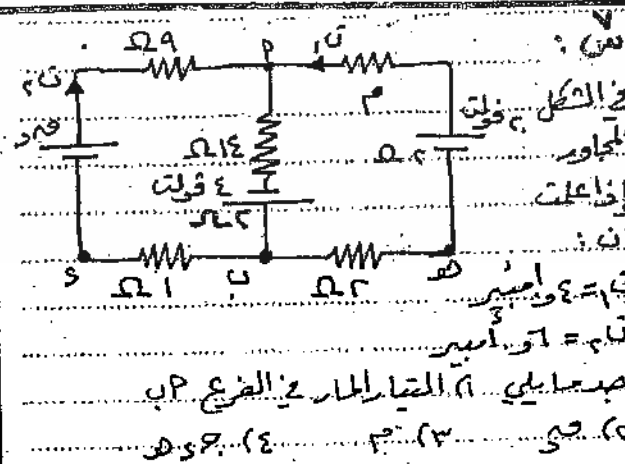 س٧ :
في الشكل
المجاور
إذا علمت
أن :
ت١ = ٤و. أمبير
ت٢ = ٦و. أمبير
جد ما يلي ١) التيار المار في الفرع P ب
٢) ٣) م ٤) جـ د هـ
Ω ٩
P
ت١
م
ت٢
Ω ١٤
٤ فولت
Ω ٢
فولت
د
Ω ١
ب
Ω ٢
هـ